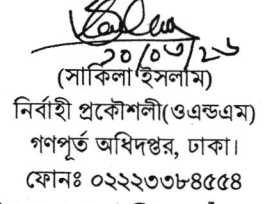 ২০/০৩/২৬
(সাকিলা ইসলাম)
নির্বাহী প্রকৌশলী(ওএন্ডএম)
গণপূর্ত অধিদপ্তর, ঢাকা।
ফোনঃ ০২২২৩৩৮৪৫৫৪